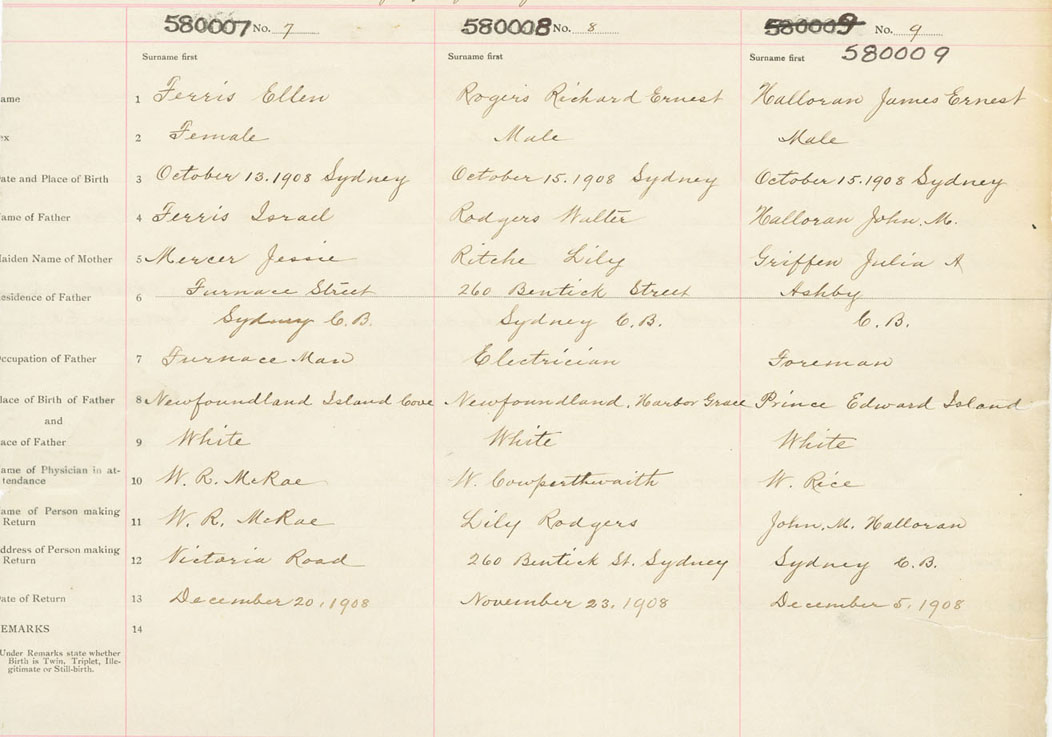 580007 No. 7 580008 No. 8 580009 No. 9
Surname first Surname first Surname first 580009
ame 1 Ferris Ellen Rogers Richard Ernest Halloran James Ernest
ex 2 Female Male Male
ate and Place of Birth 3 October 13. 1908 Sydney October 15. 1908 Sydney October 15. 1908 Sydney
ame of Father 4 Ferris Israel Rodgers Walter Halloran John. M.
aiden Name of Mother 5 Mercer Jessie Ritche Lily Griffen Julia A
esidence of Father 6 Furnace Street 260 Bentick Street Ashby
Sydney C.B. Sydney C.B. C.B.
ccupation of Father 7 Furnace Man Electrician Foreman
lace of Birth of Father 8 Newfoundland Island Cove Newfoundland, Harbor Grace Prince Edward Island
and
ace of Father 9 White White White
ame of Physician in at-
tendance 10 W. R. McRae W. Cowperthwaith W. Rice
ame of Person making
Return 11 W. R. McRae Lily Rodgers John. M. Halloran
ddress of Person making
Return 12 Victoria Road 260 Bentick St. Sydney Sydney C.B.
ate of Return 13 December 20, 1908 November 23, 1908 December 5, 1908
EMARKS 14
Under Remarks state whether
Birth is Twin, Triplet, Ille-
gitimate or Still-birth.